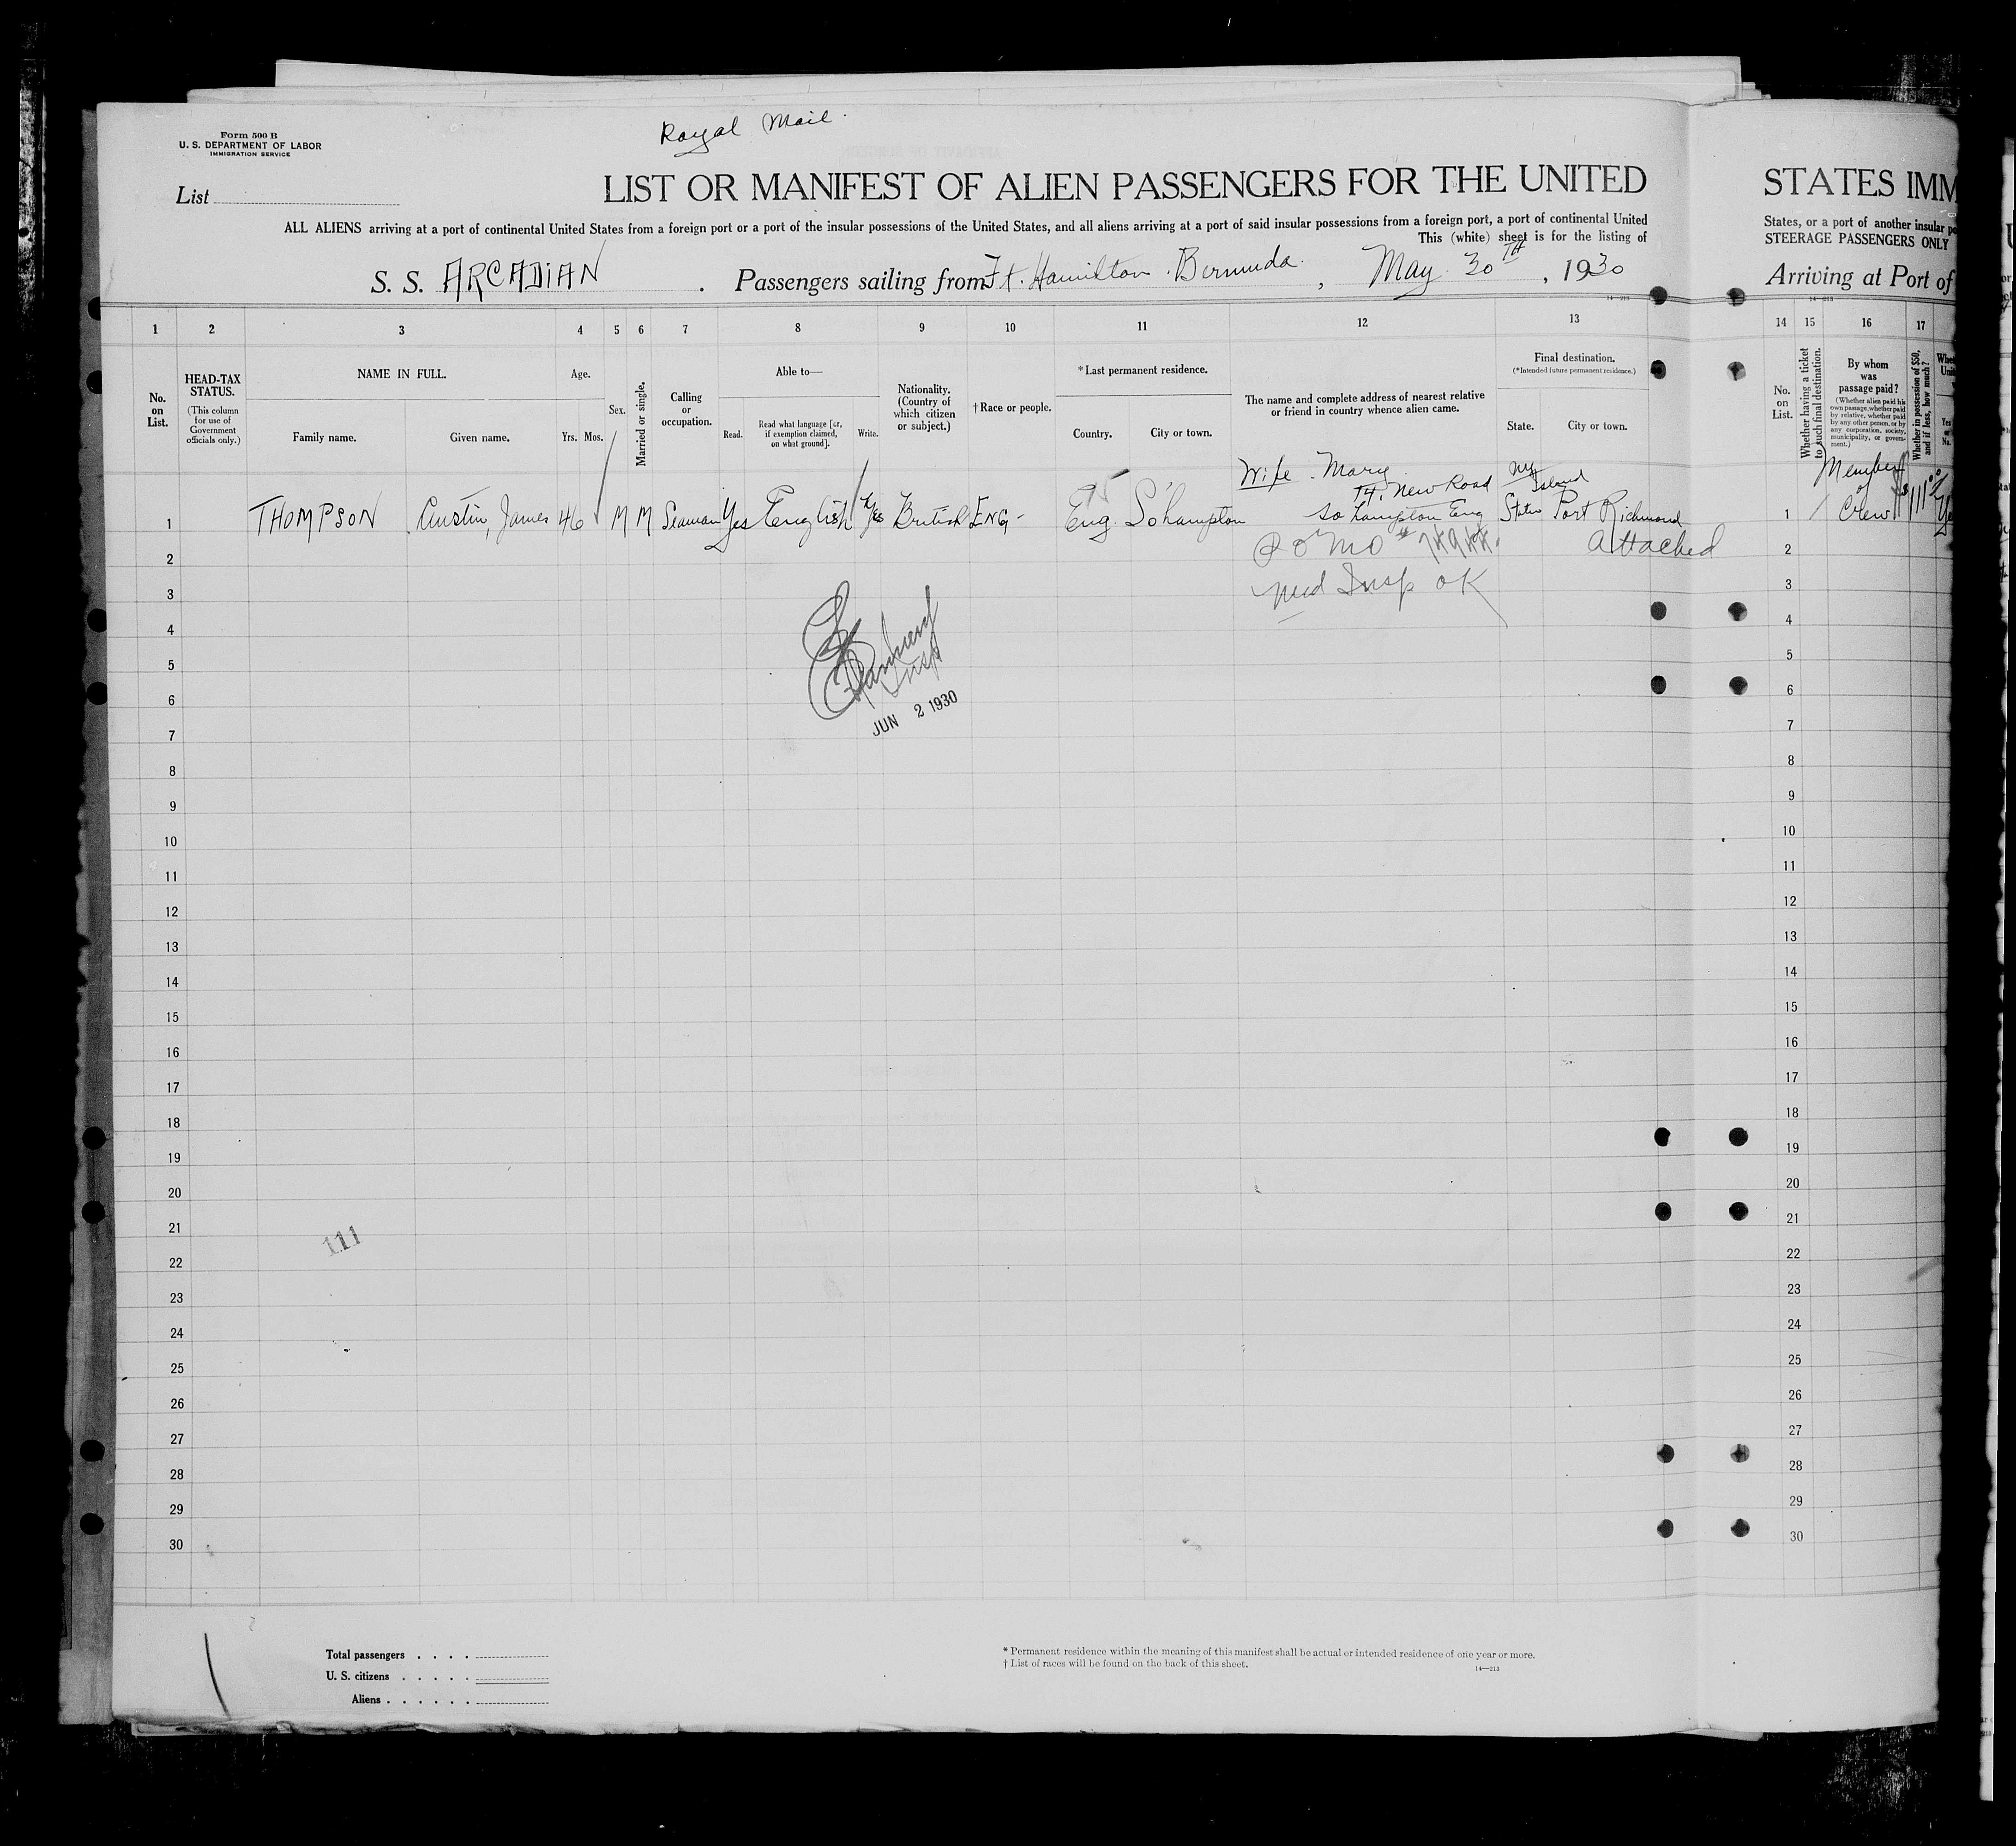 Royal Mail.
Form 500 B
U. S. DEPARTMENT OF LABOR
IMMIGRATION SERVICE
List
LIST OR MANIFEST OF ALIEN PASSENGERS FOR THE UNITED
ALL ALIENS arriving at a port of continental United States from a foreign port or a port of the insular possessions of the United States, and all aliens arriving at a port of said insular possessions from a foreign port, a port of continental United
This (white) sheet is for the listing of
S. S. ARCADIAN. Passengers sailing from Ft. Hamilton Bermuda, May 30TH, 1930
14—213
1 2 3 4 5 6 7 8 9 10 11 12 13
No. on List.
HEAD-TAX STATUS.
(This column for use of Government officials only.)
NAME IN FULL.
Family name. Given name.
Age.
Yrs. Mos.
Sex.
Married or single.
Calling or occupation.
Able to—
Read. Read what language [or, if exemption claimed, on what ground]. Write.
Nationality. (Country of which citizen or subject.)
† Race or people.
* Last permanent residence.
Country. City or town.
The name and complete address of nearest relative or friend in country whence alien came.
Final destination.
(*Intended future permanent residence.)
State. City or town.
1 THOMPSON Austin, James 46 M M Seaman Yes English Yes British ENG- Eng. So'hampton Wife Mary 14, New Road So'hampton Eng NY Staten Island Port Richmond
2 Attached
Med Insp OK
3
4
5
6
Insp
JUN 2 1930
7
8
9
10
11
12
13
14
15
16
17
18
19
20
21
111
22
23
24
25
26
27
28
29
30
Total passengers . . . .
U. S. citizens . . . . .
Aliens . . . . . .
* Permanent residence within the meaning of this manifest shall be actual or intended residence of one year or more.
† List of races will be found on the back of this sheet.
14—213
STATES IMM
States, or a port of another insular po
STEERAGE PASSENGERS ONLY
Arriving at Port of
14—213
14 15 16 17
No. on List.
Whether having a ticket to such final destination.
By whom was passage paid?
(Whether alien paid his own passage, whether paid by relative, whether paid by any other person, or by any corporation, society, municipality, or government.)
Whether in possession of $50, and if less, how much?
1 / Member of Crew
2
3
4
5
6
7
8
9
10
11
12
13
14
15
16
17
18
19
20
21
22
23
24
25
26
27
28
29
30